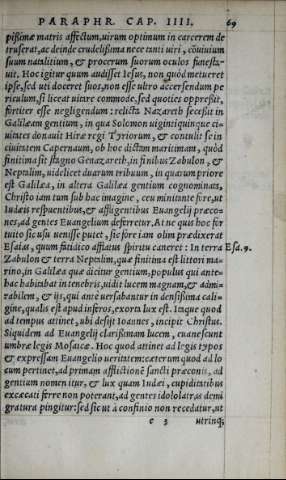 PARAPHR. CAP. IIII. 69
pijssimæ matris affectum, uirum optimum in carcerem de
truserat, ac deinde crudelissima nece tanti uiri, cōuiuium
suum natalitium, & procerum suorum oculos funesta-
uit. Hoc igitur quum audisset Iesus, non quòd metueret
ipse, sed uti doceret suos, non esse ultro accersendum pe
riculum, si liceat uitare commode, sed quoties oppresserit,
fortiter esse negligendum: relicta Nazareth secessit in
Galilæam gentium, in qua Solomon uiginti quinque ci-
uitates donauit Hiræ regi Tyriorum, & contulit se in
ciuitatem Capernaum, ob hoc dictam maritimam, quòd
finitima sit stagno Genazareth, in finibus Zabulon, &
Neptalim, uidelicet duarum tribuum, in quarum priore
est Galilæa, in altera Galilæa gentium cognominata,
Christo iam tum sub hac imagine, ceu minitante fore, ut
Iudæis respuentibus, & affligentibus Euangelij præco-
nes, ad gentes Euangelium deferretur. At ne quis hoc for
tuito sic usu uenisse putet, sic fore iam olim prædixerat
Esaias, quum fatidico afflatus spiritu caneret: In terra Esa.9.
Zabulon & terra Neptalim, quæ finitima est littori ma-
rino, in Galilæa quæ dicitur gentium, populus qui ante-
hac habitabat in tenebris, uidit lucem magnam, & admi-
rabilem, & ijs, qui antè uersabantur in densissima cali-
gine, qualis est apud inferos, exorta lux est. Itaque quod
ad tempus attinet, ubi desijt Ioannes, incipit Christus.
Siquidem ad Euangelij clarissimam lucem, euanescunt
umbræ legis Mosaicæ. Hoc quod attinet ad legis typos
& expressam Euangelio ueritatem: cæterum quod ad lo
cum pertinet, ad primam afflictionē sancti præconis, ad
gentium nomen itur, & lux quam Iudæi, cupiditatibus
excæcati ferre non poterant, ad gentes idololatras demi
gratura pingitur: sed sic ut à confinio non recedatur, ut
c 3 utrinq;